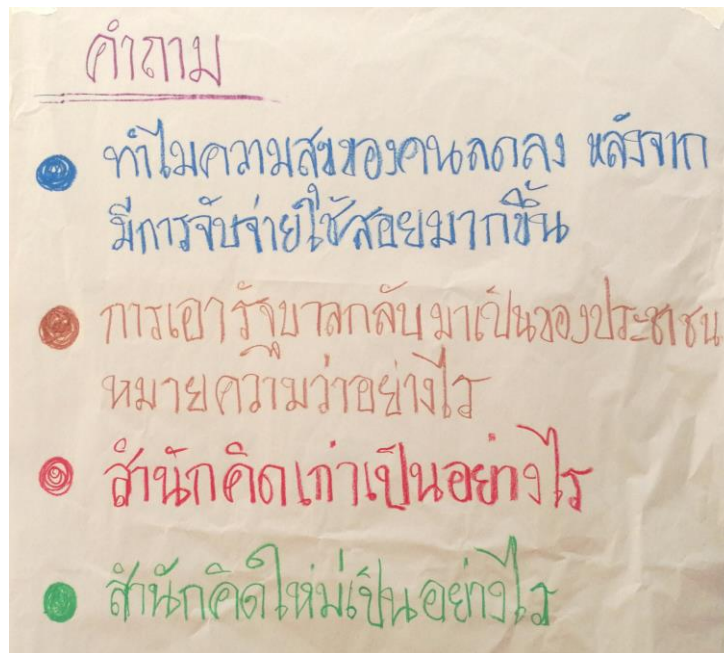 คำถาม
ทำไมความสุขของคนลดลง หลังจาก
มีการจับจ่ายใช้สอยมากขึ้น
การเอารัฐบาลกลับมาเป็นของประชาชน
หมายความว่าอย่างไร
สำนักคิดเก่าเป็นอย่างไร
สำนักคิดใหม่เป็นอย่างไร